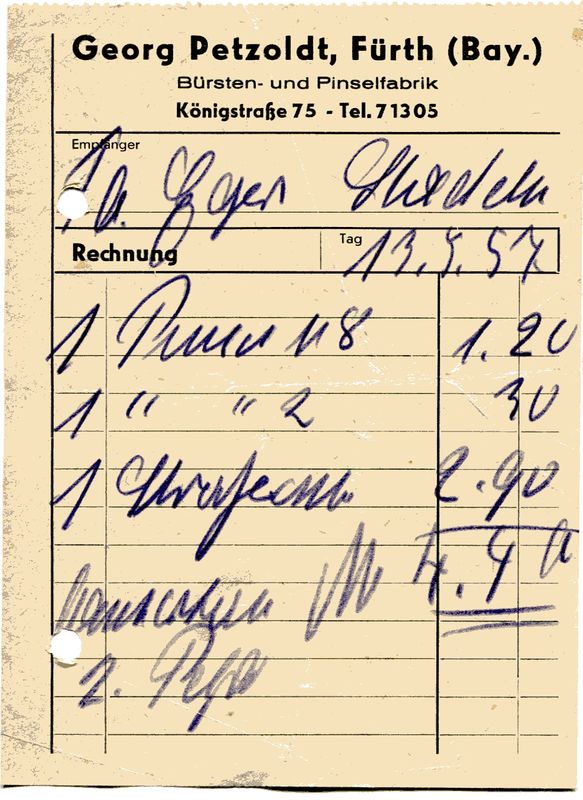 Georg Petzoldt, Fürth (Bay.)
Bürsten- und Pinselfabrik
Königstraße 75 - Tel. 71305
Empfänger
Fa. Egger
Rechnung
Tag 13.5.57
1 Pinsel 8 1.20
1 " " 2 30
1 2.90
4.40